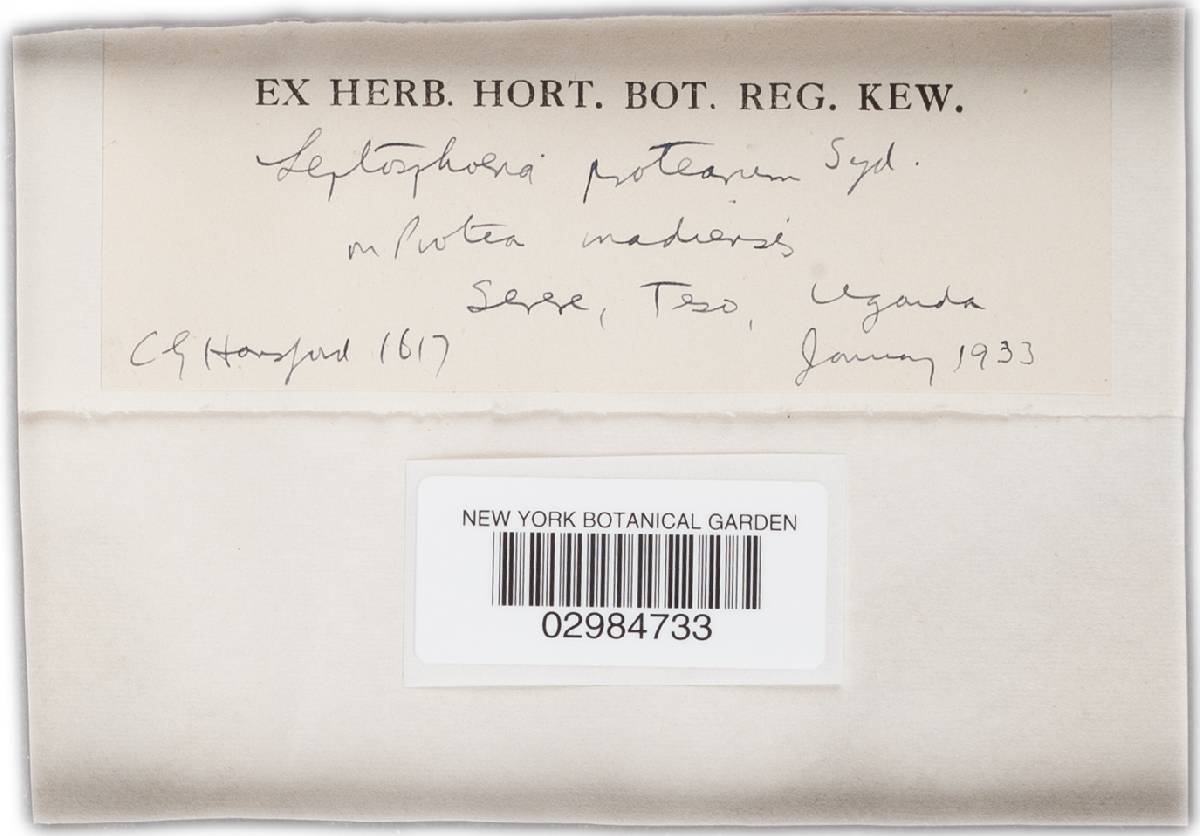 EX HERB. HORT. BOT. REG. KEW.
Leptosphaeria protearum Syd.
on Protea madiensis
Serere, Teso, Uganda
CG Hansford 1617
January 1933
NEW YORK BOTANICAL GARDEN
02984733